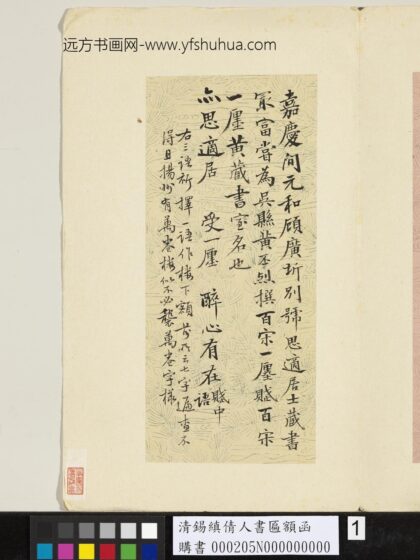 远方书画网-www.yfshuhua.com
嘉慶間元和顧廣圻別號思適居士藏書
最富嘗為吳縣黃丕烈撰百宋一廛賦百宋
一廛黃藏書室名也
思適居 受一廛 醉心有在賦中語
右三語祈擇一語作樓下額
得且揚州有萬卷樓似不必襲萬卷字樣
清錫縝倩人書區額函
購書 000205N000000000
1